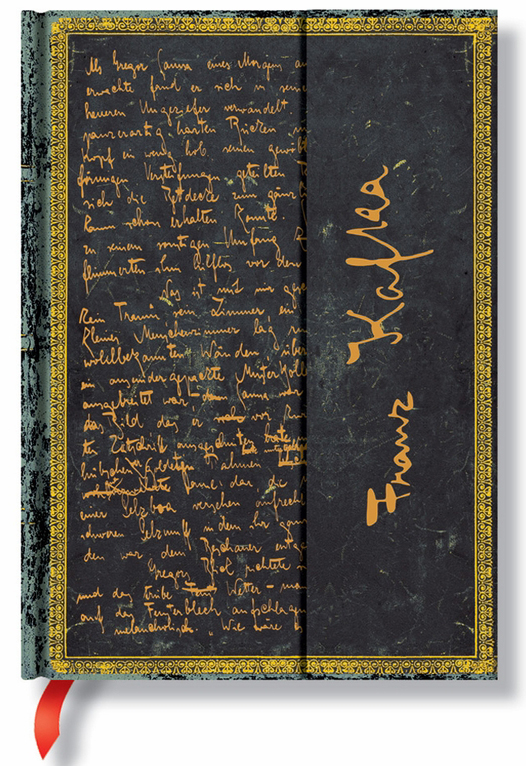 Als Gregor Samsa eines Morgen
erwachte fand er sich in
heueren Ungeziefer verwandelt
panzerartig harten Rücken
Kopf ein wenig hob seinen
förmigen Versteifungen geteilten
sich die Bettdecke zum
kaum erhalten konnte.
zu seinem sonstigen Umfang
flimmerten ihm hilflos vor den
Was ist mit mir
Kein Traum sein Zimmer ein
kleines Menschenzimmer lag
wohlbekannten Wänden über
ein auseinandergepackte Musterkolle
ausgebreitet war, Samsa war
das Bild das er vor
ten Zeitschrift ausgeschnitten
hübschen goldeten Rahmen
Dame dar die
einer Pelzboa versehen aufrecht
schweren Pelzmuff in dem ihr
den war dem Beschauer
Gregors Blick richtete
und das trübe Wetter – man
auf das Fensterblech aufschlagen
melancholisch. „Wie wäre
Franz Kafka